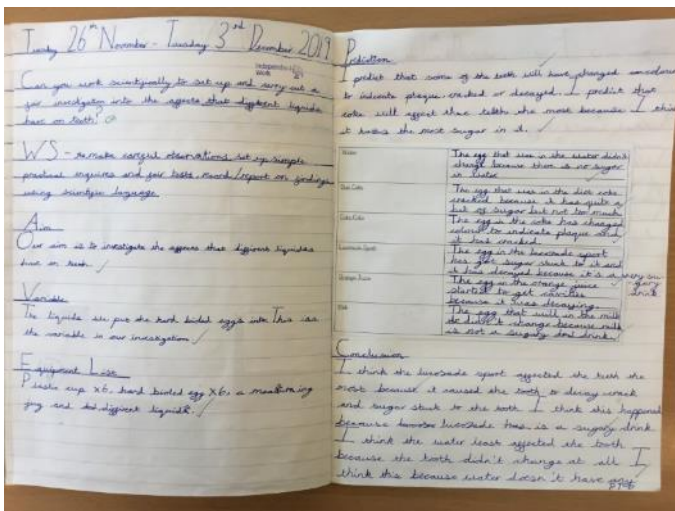 Tuesday 26th November - Tuesday 3rd December 2019
Independent
Work
Can you work scientifically to set up and carry out a
fair investigation into the affects that different liquids
have on teeth?
WS - to make careful observations, set up simple
practical enquires and fair tests, record/report on findings
using scientific language.
Aim
Our aim is to investigate the affects that different liquides
have on teeth.
Variable
The liquids we put the hard boiled eggs into. This is
the variable in our investigation.
Equipment List
Plastic cup x6, hard boiled egg x6, a measuring
jug and different liquids.
Prediction
I predict that some of the teeth will have changed
to indicate plaque, cracked or decayed. I predict that
coke will affect the teeth the most because I
it has the most sugar in it.
Water
The egg that was in the water didn't
change because there is no sugar
in water
Diet Coke
The egg that was in the diet coke
cracked because it has quite a
bit of sugar but not too much
Coca Cola
The egg in the coke has changed
colour to indicate plaque and
it has cracked.
Lucozade Sport
The egg in the lucozade sport
has got sugar stuck to it and
it has decayed because it's a very sugary
drink
Orange Juice
The egg in the orange juice
started to get cavities
because it was decaying.
Milk
The egg that was in the milk
didn't change because milk
is not a sugary drink.
Conclusion
I think the lucozade sport affected the teeth the
most because it caused the tooth to decay crack
and sugar stuck to the tooth. I think this happened
because lucozade is a sugary drink
I think the water least affected the tooth
because the tooth didn't change at all I
think this because water doesn't have any